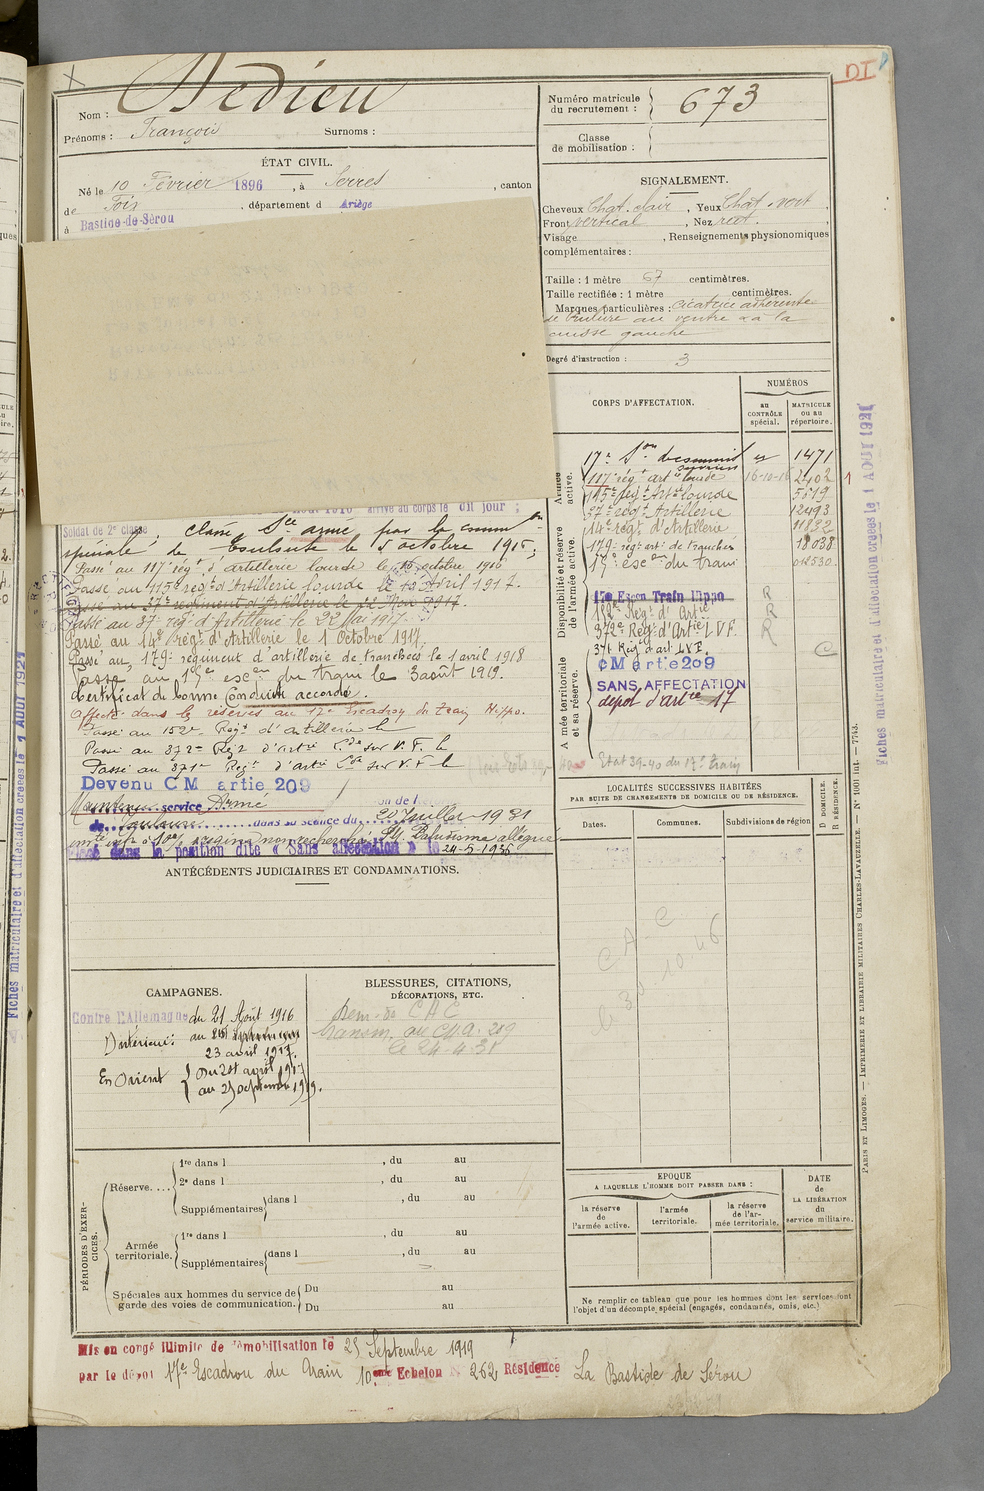 DI
Nom : Dedieu
Prénoms : François Surnoms :
Numéro matricule du recrutement : 673
Classe de mobilisation :
ÉTAT CIVIL.
Né le 10 Février 1896, à Serres, canton
de Foix, département d Ariège
à Bastide-de-Sérou
SIGNALEMENT.
Cheveux Chat. clair, Yeux Chat. vert,
Front vertical, Nez rect.
Visage , Renseignements physionomiques
complémentaires :
Taille : 1 mètre 67 centimètres.
Taille rectifiée : 1 mètre centimètres.
Marques particulières : cicatrice adhérente
de brulure au ventre & à la
cuisse gauche
Degré d'instruction : 3
CORPS D'AFFECTATION.
NUMÉROS
au CONTRÔLE spécial.
MATRICULE ou au RÉPERTOIRE.
Armée active.
Disponibilité et réserve de l'armée active.
A mée territoriale et sa réserve.
17e Son 1471
117e rég. art. lourde 16-10-16 2402
115e Rég. Art. lourde 5519
37e rég. Artillerie 12493
14e rég. d'Artillerie 11832
179e rég. art. de tranchées 18038
17e escon du train
17e Escon Train Hippo
152e Reg. d'Artie R
372e Reg. d'Artie L V F R
371 Reg. d'art L.V.F. R
C
CM artie 209
SANS AFFECTATION
dépot d'artie 17
Etat 39-40 du 17e train
arrivé au corps le dit jour ;
Soldat de 2e classe
classé Sce armé par la common
spéciale de Toulouse le 5 octobre 1916;
Passé au 117e régt d'artillerie lourde le 16 octobre 1916
Passé au 115e régt d'Artillerie lourde le 12 Avril 1917.
Passé au 37e régiment d'Artillerie le 22 Mai 1917.
Passé au 37e régt d'Artillerie le 22 Mai 1917.
Passé au 14e régt d'Artillerie le 1 Octobre 1917.
Passé au 179e régiment d'artillerie de tranchées le 1 avril 1918
Passé au 17e escon du train le 3 août 1919.
Certificat de bonne Conduite accordé.
Affecté dans la réserve au 17e Escadron du train Hippo.
Passé au 152e Regt d'artillerie le
Passé au 372e Regt d'artie Lde sur V. F. le
Passé au 371e Regt d'artie Lde sur V. F. le
Devenu C M artie 209
Maintenu service Armé
de Toulouse dans sa séance du 20 Juillet 1931
Paludisme allégué
Placé dans la position dite « Sans affectation » le 24-5-1936
ANTÉCÉDENTS JUDICIAIRES ET CONDAMNATIONS.
LOCALITÉS SUCCESSIVES HABITÉES
PAR SUITE DE CHANGEMENTS DE DOMICILE OU DE RÉSIDENCE.
Dates. Communes. Subdivisions de région
D DOMICILE.
R RÉSIDENCE.
C A C
le 30 10 46
CAMPAGNES.
Contre L'Allemagne du 21 Août 1916
Intérieur : au
23 avril 1917.
En Orient du 24 avril 1917
au 25 septembre 1919.
BLESSURES, CITATIONS,
DÉCORATIONS, ETC.
Rem. du CAC
transm. au CMA. 209
le 24-4-31
PÉRIODES D'EXERCICES.
Réserve.... 1re dans l , du au
2e dans l , du au
Supplémentaires dans l , du au
Armée territoriale. 1re dans l , du au
Supplémentaires dans l , du au
Spéciales aux hommes du service de garde des voies de communication. Du au
Du au
EPOQUE
A LAQUELLE L'HOMME DOIT PASSER DANS :
la réserve de l'armée active.
l'armée territoriale.
la réserve de l'armée territoriale.
DATE de LA LIBÉRATION du service militaire.
Ne remplir ce tableau que pour les hommes dont les services font
l'objet d'un décompte spécial (engagés, condamnés, omis, etc.)
Mis en congé illimité de démobilisation le 25 Septembre 1919
par le dépot 17e Escadron du Train 10 eme Echelon N 262 Résidence La Bastide de Sérou
PARIS ET LIMOGES. — IMPRIMERIE ET LIBRAIRIE MILITAIRES CHARLES-LAVAUZELLE. — N° 1001 int. — 7743.
Fiches matriculaire et d'affectation créées le 1 AOUT 1921
Fiches matriculaire et d'affectation créées le 1 AOUT 1921